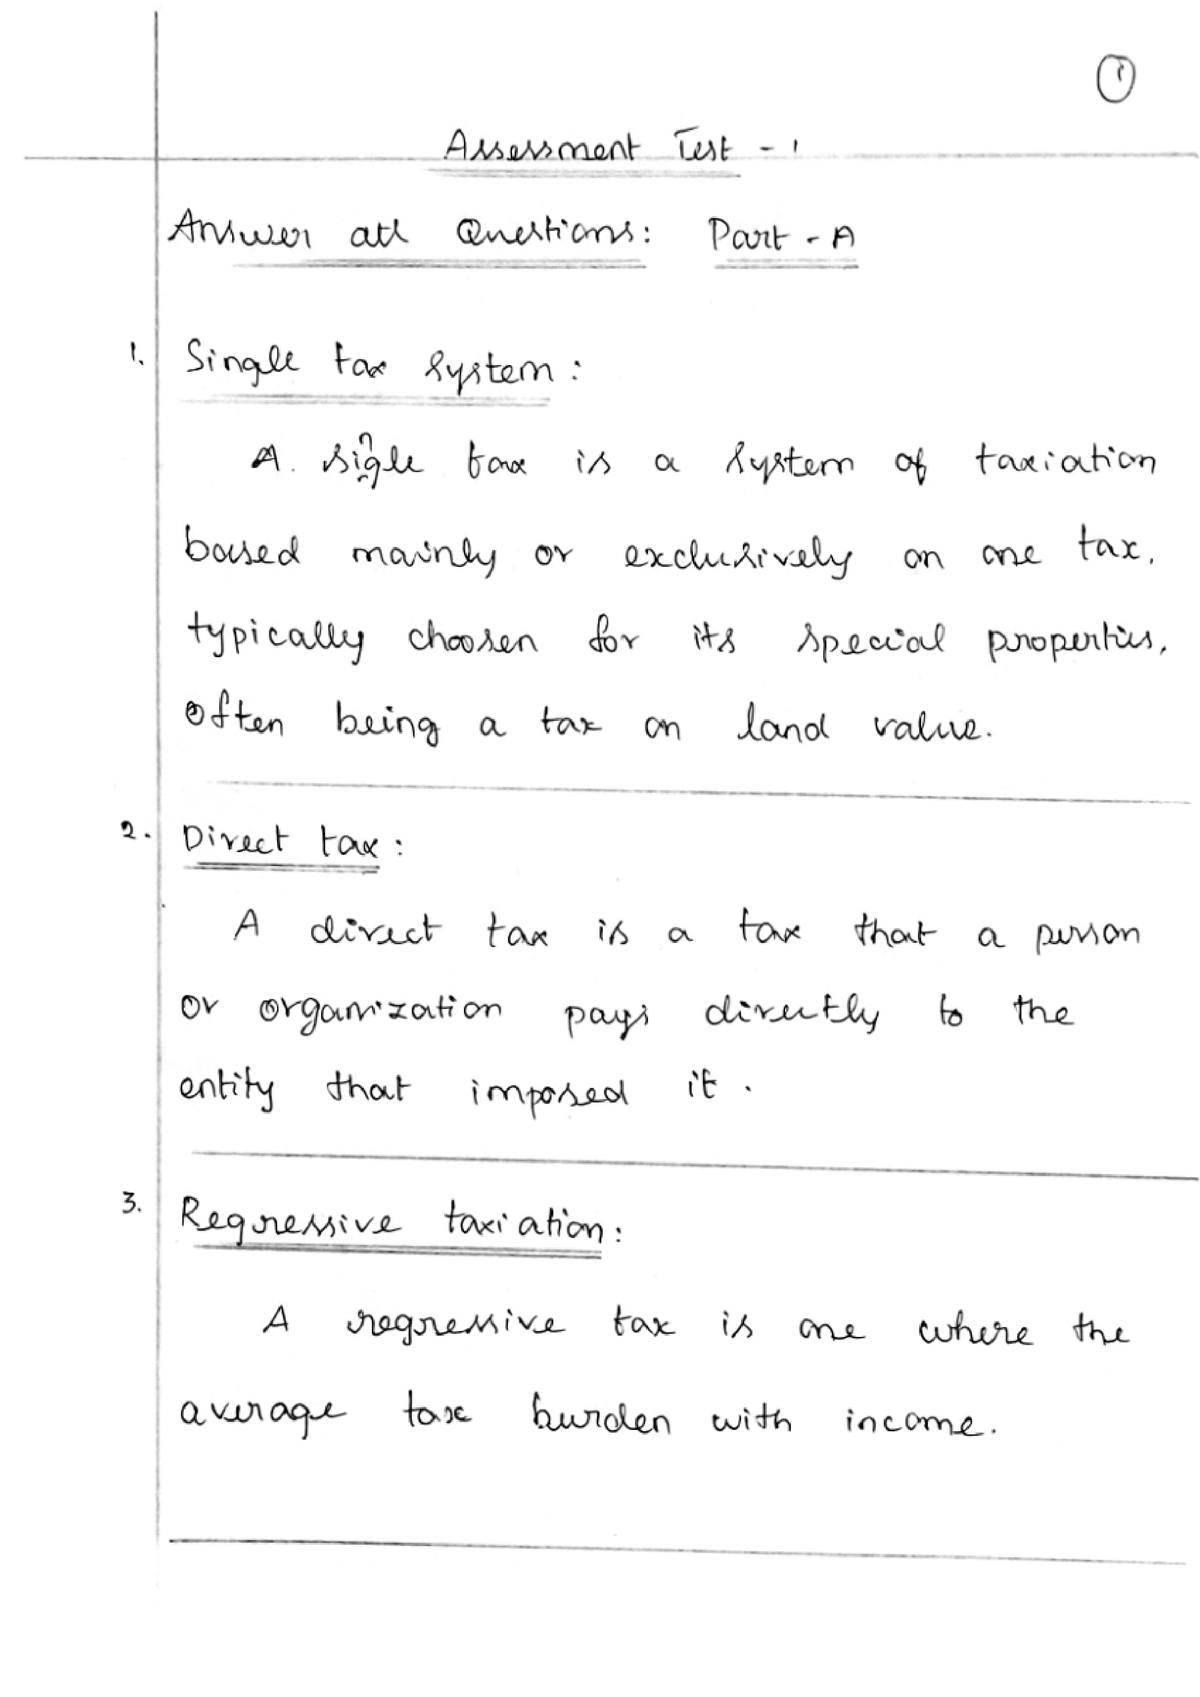 1
Assessment Test - 1
Answer all Questions: Part - A
1. Single tax System:
A. single tax is a system of taxiation
based mainly or exclusively on one tax,
typically choosen for its special properties,
often being a tax on land value.
2. Direct tax:
A direct tax is a tax that a person
or organization pays directly to the
entity that imposed it.
3. Regressive taxiation:
A regressive tax is one where the
average tax burden with income.